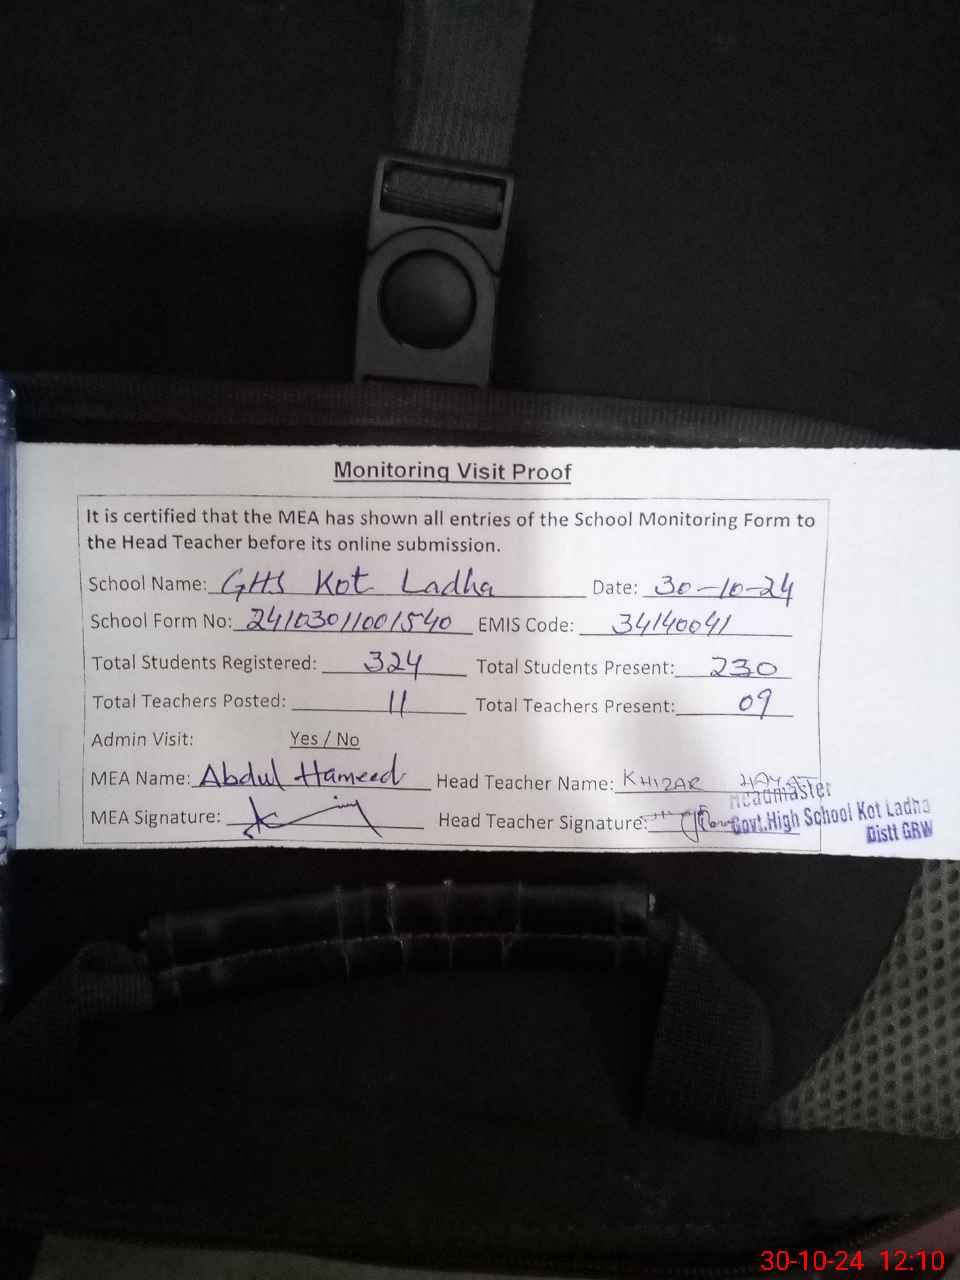 Monitoring Visit Proof
It is certified that the MEA has shown all entries of the School Monitoring Form to
the Head Teacher before its online submission.
School Name: GHS Kot Ladha Date: 30-10-24
School Form No: 24103011001540 EMIS Code: 34140041
Total Students Registered: 324 Total Students Present: 230
Total Teachers Posted: 11 Total Teachers Present: 09
Admin Visit: Yes / No
MEA Name: Abdul Hameed Head Teacher Name: KHIZAR HAYAT
MEA Signature: Head Teacher Signature:
Headmaster
Govt.High School Kot Ladha
Distt GRW
30-10-24 12:10